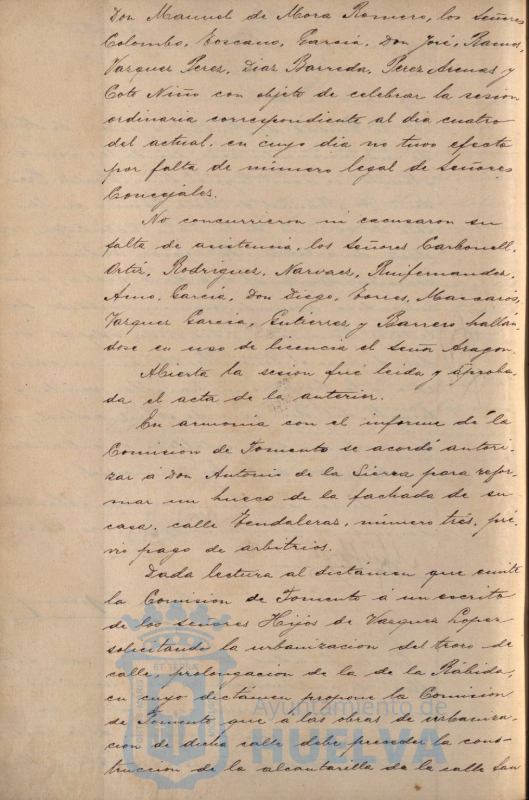 Don Manuel de Mora Romero, los Señores
Colombo, Toscano, García, Don José, Ramos,
Vazquez Perez, Diaz Barreda, Perez Arenas y
Coto Niño con objeto de celebrar la sesion
ordinaria correspondiente al dia cuatro
del actual, en cuyo dia no tuvo efecto
por falta de número legal de Señores
Concejales.
No concurrieron ni escusaron su
falta de asistencia, los Señores Carbonell,
Ortíz, Rodriguez, Narvaez, Ruifernandez,
García, Don Diego, Torres, Mascarós,
Vazquez García, Gutierrez y Barrero hallan
dose en uso de licencia el Señor Aragon.
Abierta la sesion fué leida y aproba-
da el acta de la anterior.
En armonia con el informe de la
Comision de Fomento se acordó autori-
zar á Don Antonio de la Sierra para refor-
mar un hueco de la fachada de su
casa, calle Tendaleras, número trés, pré-
vio pago de arbitrios.
Dada lectura al dictámen que emite
la Comision de Fomento á un escrito
de los señores Hijos de Vazquez Lopez
solicitando la urbanizacion del trozo de
calle, prolongacion de la de la Rábida,
en cuyo dictámen propone la Comision
de Fomento que á las obras de urbaniza-
cion de dicha calle debe preceder la cons-
truccion de la alcantarilla de la calle San
Ayuntamiento de
HUELVA